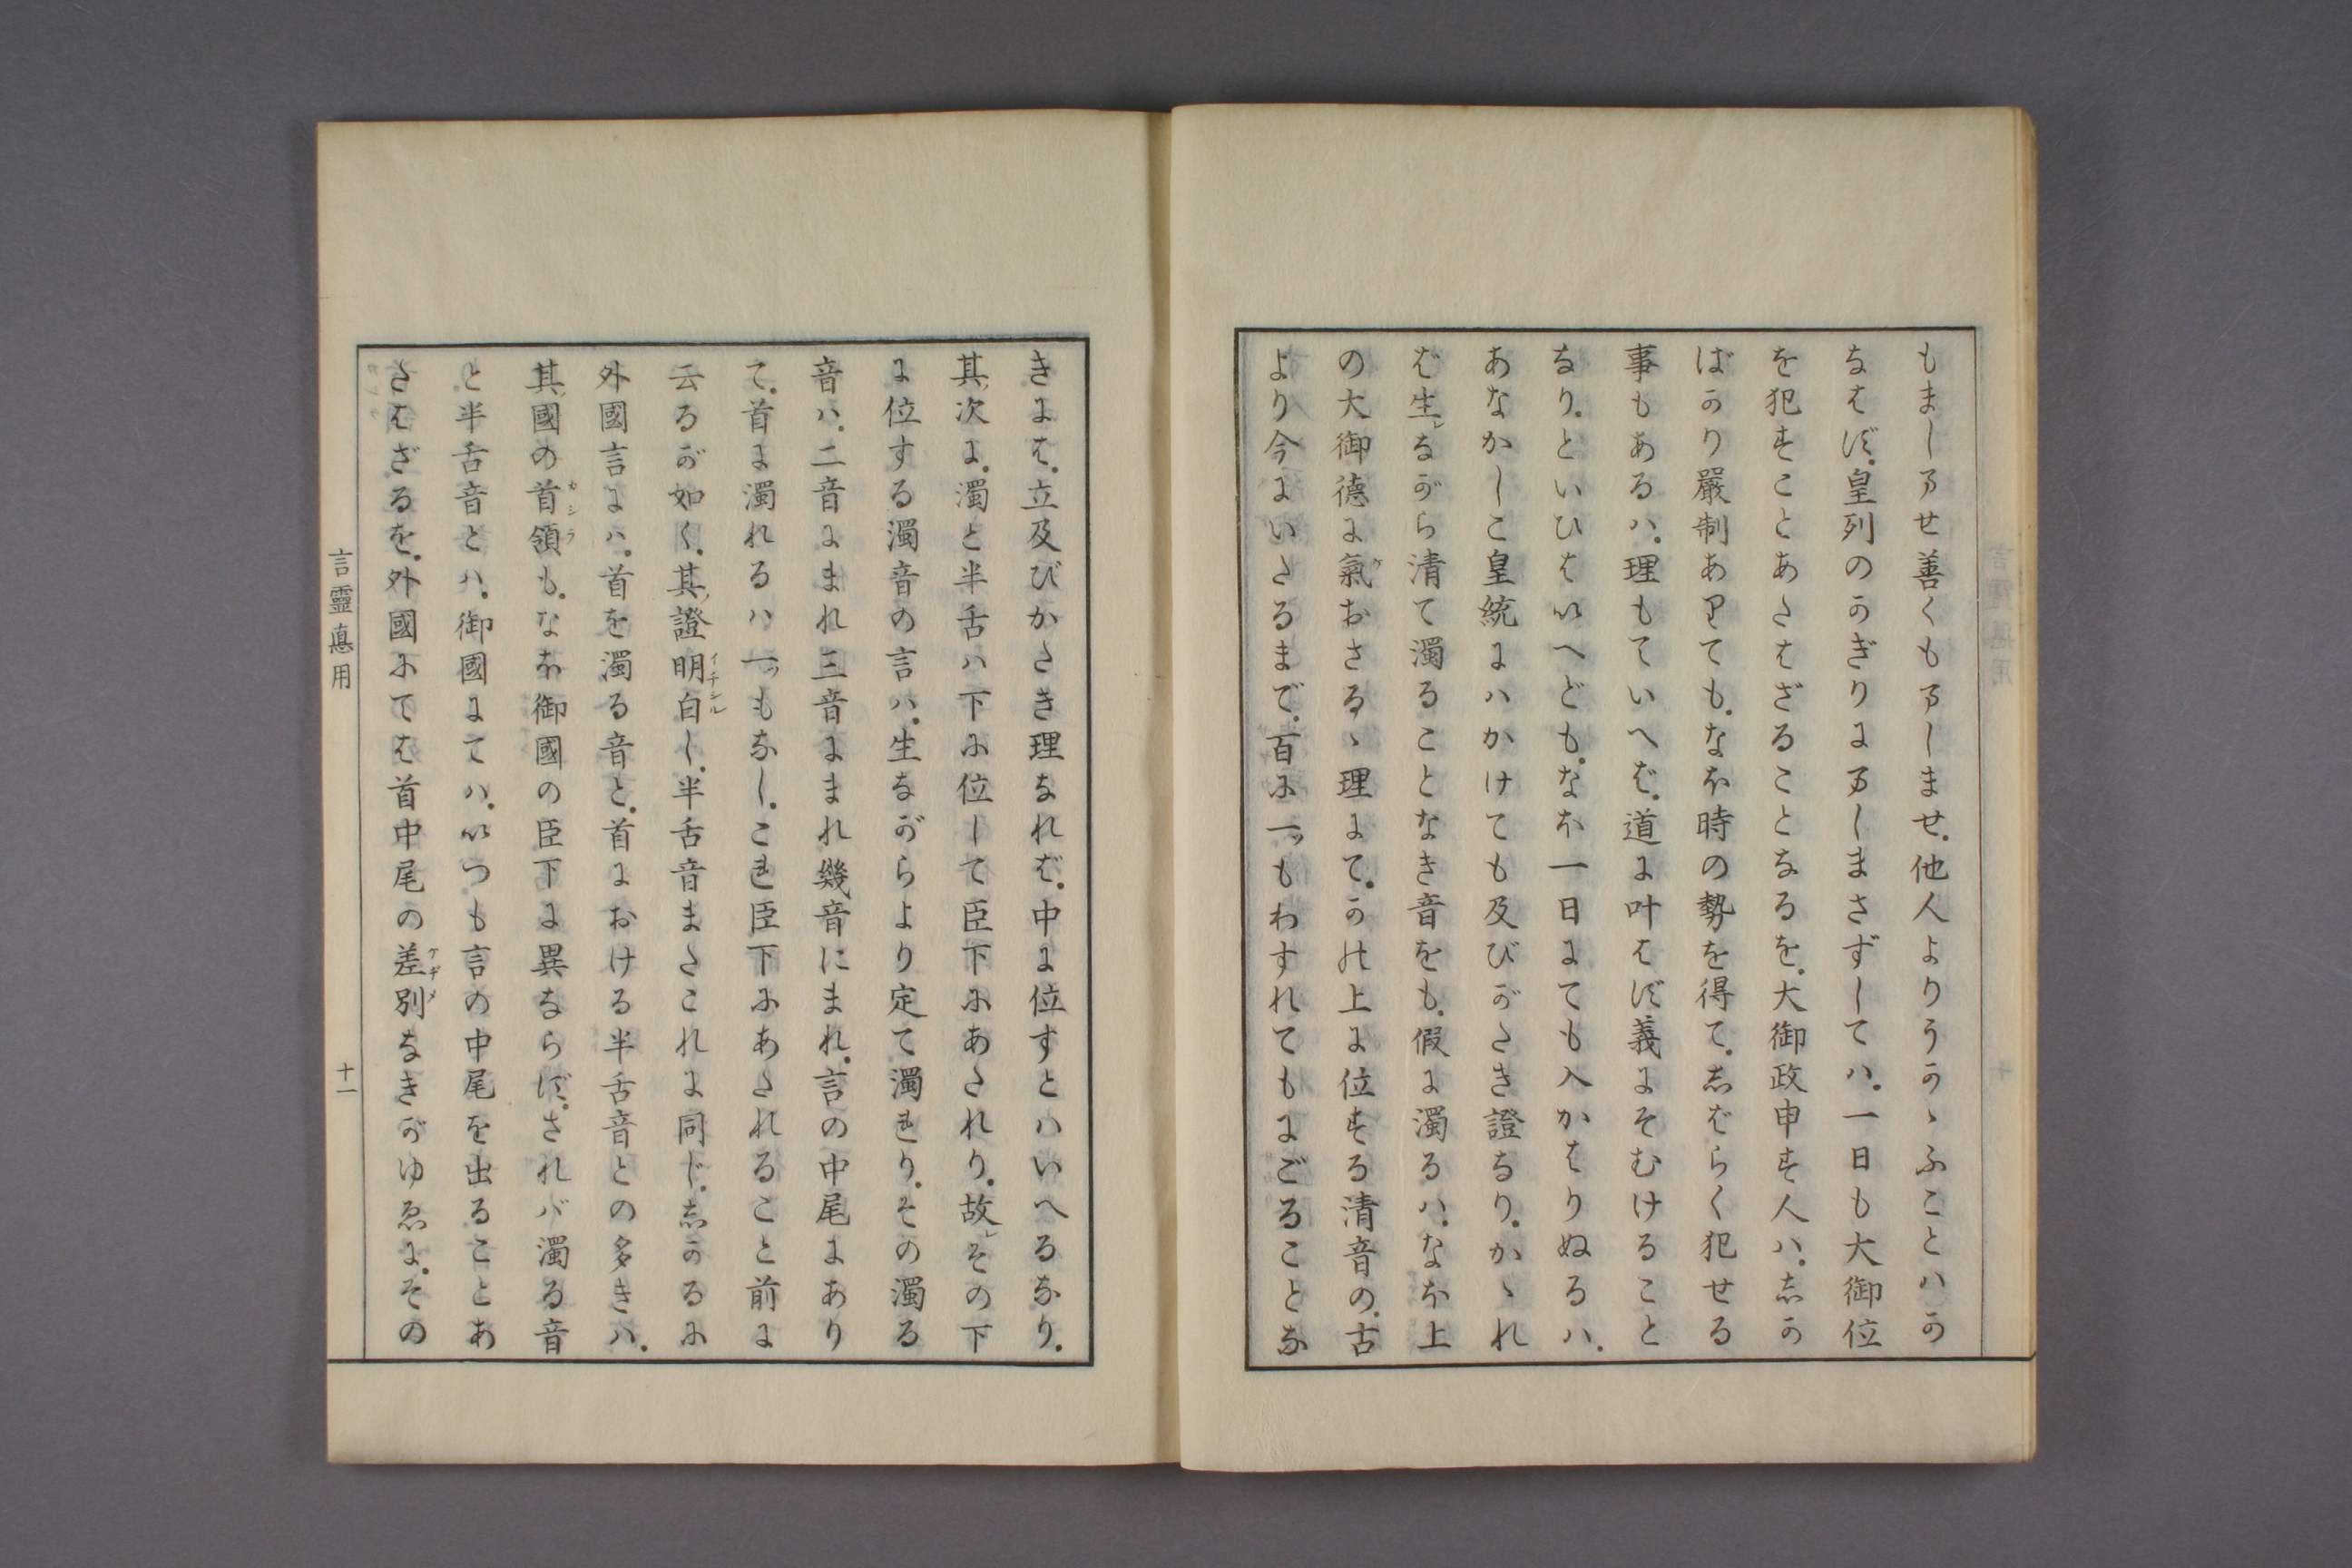 もましマせ善くもマしませ。他人よりうかゝふことハか
なはず。皇列のかぎりにマしまさずしてハ。一日も大御位
を犯すことあたはざることなるを。大御政申す人ハ。しか
ばかり嚴制ありても。なほ時の勢を得て。しばらく犯せる
事もあるハ。理もていへば。道に叶はず義にそむけること
なり。といひはいへども。なほ一日にても入かはりぬるハ。
あなかしこ皇統にハかけても及びがたき證なり。かゝれ
ば生レながら清て濁ることなき音をも。假に濁るハ。なほ上
の大御德に氣おさるゝ理にて。かの上に位する清音の。古
より今にいたるまで。百に一ツもわすれてもにごることな
きには。立及びかたき理なれば。中に位すとハいへるなり。
其ノ次に。濁と半舌ハ下に位して臣下にあたれり。故レその下
に位する濁音の言ハ。生ながらより定て濁れり。その濁る
音ハ。二音にまれ三音にまれ幾音にまれ。言の中尾にあり
て。首に濁れるハ一ツもなし。これ臣下にあたれること前に
云るが如く。其ノ證明白イチシルし。半舌音またこれに同じ。しかるに
外國言にハ。首を濁る音と。首における半舌音との多きハ。
其ノ國の首領カシラも。なほ御國の臣下に異ならず。されバ濁る音
と半舌音とハ。御國にてハ。いつも言の中尾を出ることあ
たはざるを。外國にては首中尾の差別ケヂメなきがゆゑに。その
言靈眞用
十一